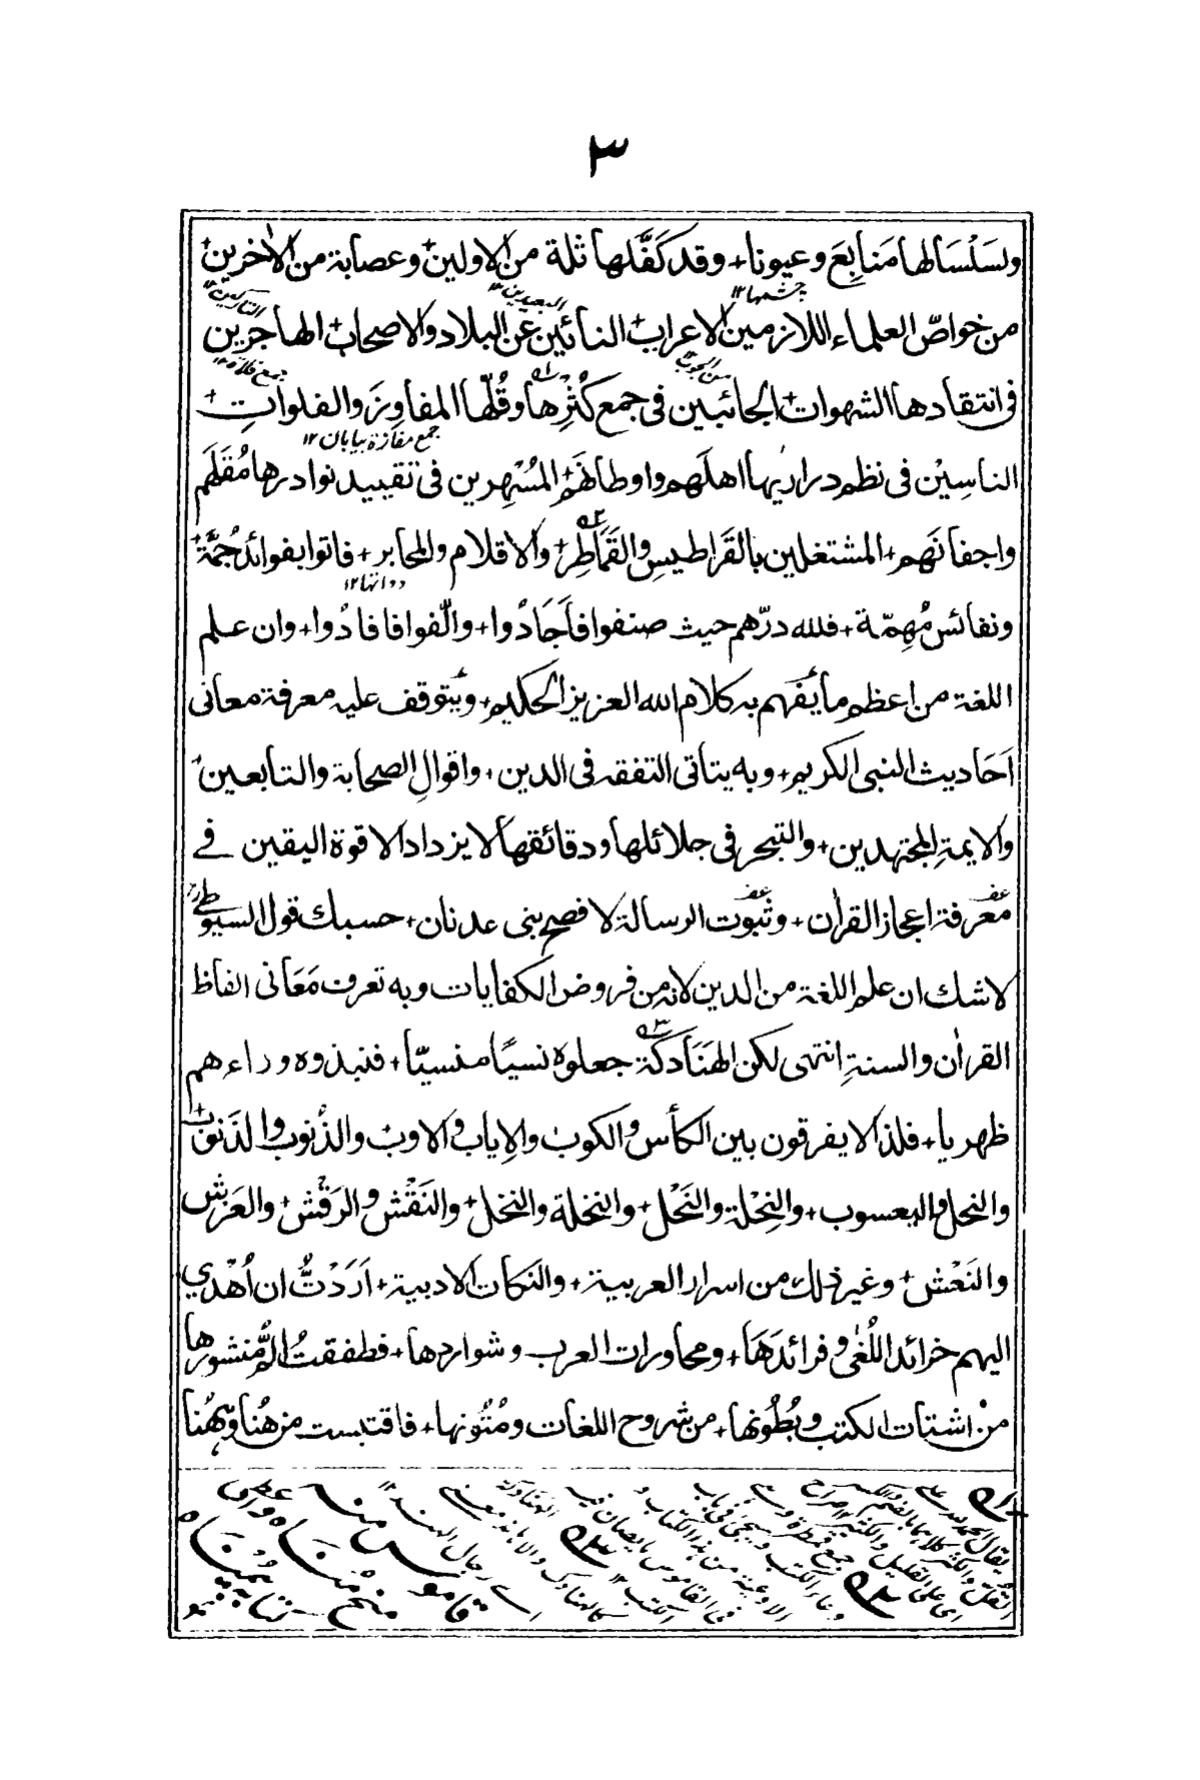 ٣
ولسَلْسَالها مَنابِعَ وعيونا + وقد كَفَّلها ثلة من الاولين + وعصابة من الاٰخرين +
چشمها ١٢
البعيدين ١٢
التاركين ١٢
من خواصّ العلماء اللازمين الاعراب + النائين عن البلاد والاصحاب + الهاجرين
جمع فلاة ١٢
فى انتقادها الشهوات + الجائبين فى جمع كُثْرِها وقُلّها المفاوِزَ والفلواتِ +
جمع مفازة بيابان ١٢
الناسِيْن فى نظم دراريّها اهلَهم واوطانَهم + المُسْهِرين فى تقييد نوادرها مُقَلَهم
واجفانَهم + المشتغلين بالقَراطيسِ والقَمَاطِر + والاقلام والمحابر + فاتوا بفوائد جُمَّة +
دواتها ١٢
ونفائس مُهِمّة + فلله درّهم حيث صنفوا فاَجَادُوا + والَّفوا فافادُوا + وان علم
اللغة من اعظم ما يُفهم به كلام الله العزيز الحكيم + ويُتوقف عليه معرفة معانى
اَحَاديث النبى الكريم + وبه يتاتى التفقه فى الدين + واقوالِ الصحابة والتابعين +
والايمةِ المجتهدين + والتبحر فى جلائلها ودقائقها لا يزداد الا قوة اليقين فے
معرفة اعجاز القراٰن + وثبوت الرسالة لافصح بنى عدنان + حسبك قول السيوطےؒ
لا شك ان علم اللغة من الدين لانه من فروض الكفايات وبه تعرف مَعَانى الفاظ
القراٰن والسنةِ انتهى لكن الهَنَادكَة جعلوه نسيًا منسيّا + فنبذوه وراءهم
ظهريا + فلذا لا يفرقون بين الكأس والكوب والاِياب والاوب والذَّنوب والذنوب +
والنحل واليعسوب + والنِحْلة والنَحْل + والنخلة والنخل + والنَقْش والرَقْش + والعَرْش
والنَعْش + وغير ذلك من اسرار العربية + والنكات الادبية + اَرَدْتُّ ان اُهْدي
اليهم خرائد اللُغٰى وفرائدَهَا + ومحاورات العرب وشواردها + فطفقتُ الُمُّ منشورها
منْ اشتات الكتب وبُطُونها + من شروح اللغات ومُتُونها + فاقتبست من هُنا وهُنا